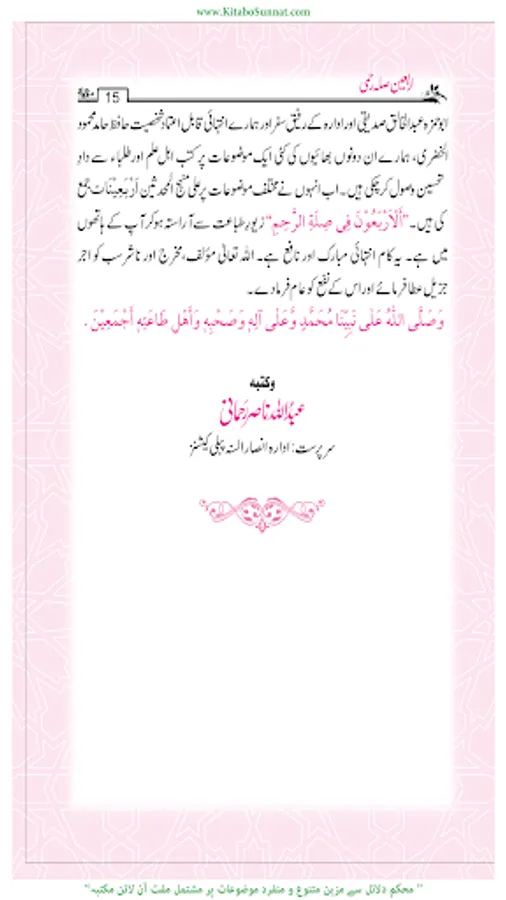 www.KitaboSunnat.com
اربعین صلہ رحمی
15
ابوحمزہ عبدالخالق صدیقی اور ادارہ کے رفیق سفر اور ہمارے انتہائی قابل اعتماد شخصیت حافظ حامد محمود
الخضری، ہمارے ان دونوں بھائیوں کی کئی ایک موضوعات پر کتب اہل علم اور طلباء سے دادِ
تحسین وصول کر چکی ہیں۔ اب انہوں نے مختلف موضوعات پر علی منہج المحدثین اَرْبَعِیْنَات جمع
کی ہیں۔ "اَلْاَرْبَعُوْنَ فِی صِلَةِ الرَّحِمِ" زیورِ طباعت سے آراستہ ہو کر آپ کے ہاتھوں
میں ہے۔ یہ کام انتہائی مبارک اور نافع ہے۔ اللہ تعالیٰ مؤلف، مخرج اور ناشر سب کو اجر
جزیل عطا فرمائے اور اس کے نفع کو عام فرما دے۔
وَصَلَّی اللّٰهُ عَلٰی نَبِیِّنَا مُحَمَّدٍ وَّعَلٰی آلِهٖ وَصَحْبِهٖ وَأَهْلِ طَاعَتِهٖ أَجْمَعِیْنَ .
وکتبه
عبداللہ ناصر رحمانی
سرپرست: ادارہ انصار السنہ پبلی کیشنز
" محکم دلائل سے مزین متنوع و منفرد موضوعات پر مشتمل مفت آن لائن مکتبہ "